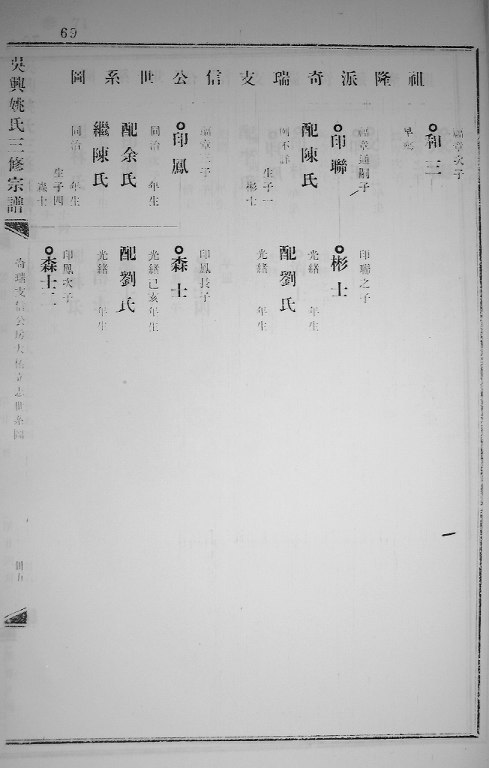 69
祖隆派奇瑞支信公世系圖
福章次子
和三
早殤
福章通嗣子
印聯
配陳氏
生子一
彬士
福章三子
印鳳
同治 年生
配余氏
繼陳氏
同治 年生
生子四
森士
印聯之子
彬士
光緒 年生
配劉氏
光緒 年生
印鳳長子
森士
光緒己亥年生
配劉氏
光緒 年生
印鳳次子
森士二
吳興姚氏三修宗譜
奇瑞支信公房大
世系圖